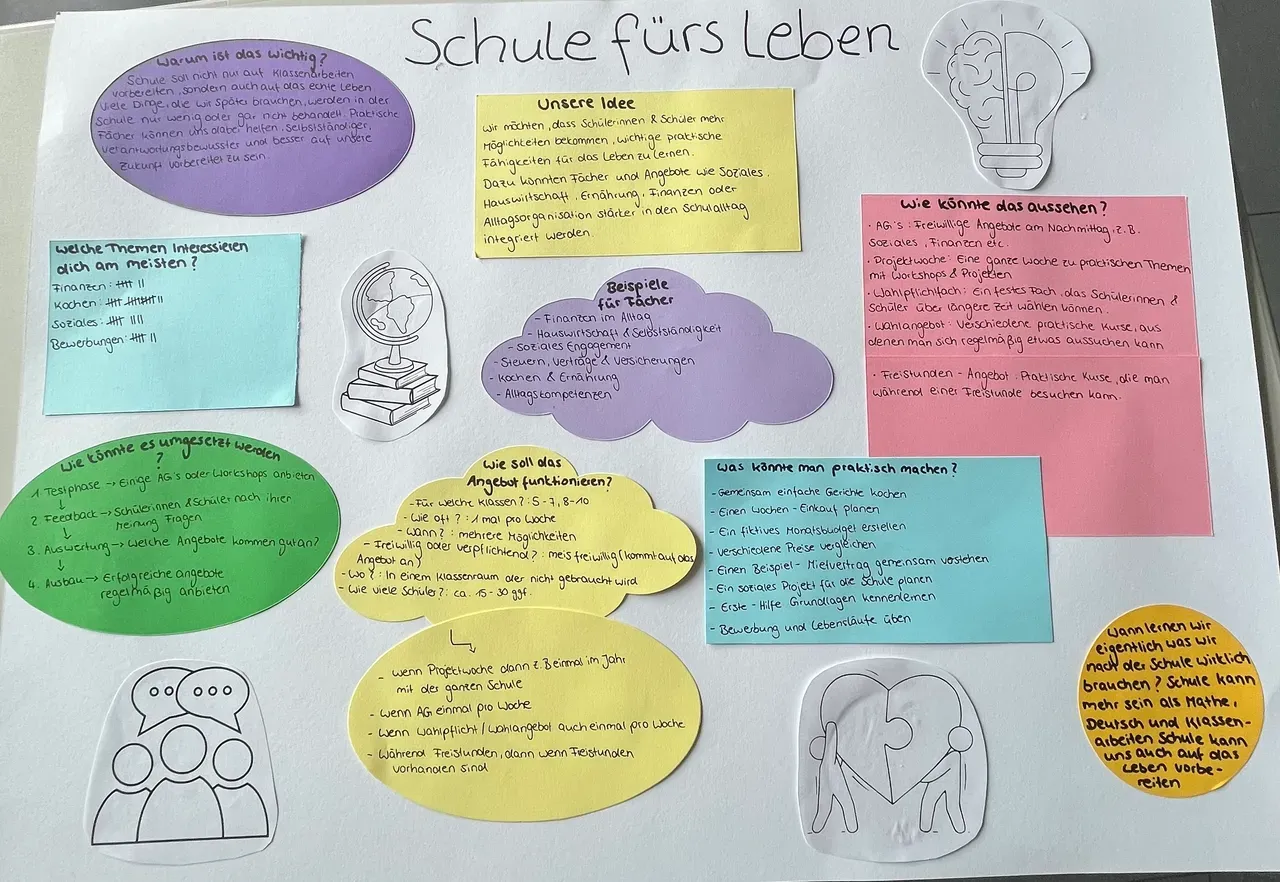 Schule fürs Leben
Warum ist das wichtig?
Schule soll nicht nur auf Klassenarbeiten
vorbereiten, sondern auch auf das echte Leben
Viele Dinge, die wir später brauchen, werden in der
Schule nur wenig oder gar nicht behandelt. Praktische
Fächer können uns dabei helfen, selbstständiger,
verantwortungsbewusster und besser auf unsere
Zukunft vorbereitet zu sein.
Unsere Idee
Wir möchten, dass Schülerinnen & Schüler mehr
Möglichkeiten bekommen, wichtige praktische
Fähigkeiten für das Leben zu lernen.
Dazu könnten Fächer und Angebote wie Soziales,
Hauswirtschaft, Ernährung, Finanzen oder
Alltagsorganisation stärker in den Schulalltag
integriert werden.
Wie könnte das aussehen?
· AG's : Freiwillige Angebote am Nachmittag, z.B.
Soziales, Finanzen etc.
· Projektwoche: Eine ganze Woche zu praktischen Themen
mit Workshops & Projekten
· Wahlpflichtfach: Ein festes Fach, das Schülerinnen &
Schüler über längere Zeit wählen können.
· Wahlangebot: Verschiedene praktische Kurse, aus
denen man sich regelmäßig etwas aussuchen kann
· Freistunden - Angebot: Praktische Kurse, die man
während einer Freistunde besuchen kann.
Welche Themen Interessieren
dich am meisten?
Finanzen:
Kochen:
Soziales:
Bewerbungen:
Beispiele
für Fächer
- Finanzen im Alltag
- Hauswirtschaft & Selbstständigkeit
- Soziales Engagement
- Steuern, Verträge & Versicherungen
- Kochen & Ernährung
- Alltagskompetenzen
Wie könnte es umgesetzt werden
?
1. Testphase → Einige AG's oder Workshops anbieten
↓
2. Feedback → Schülerinnen & Schüler nach ihren
Meinung Fragen
↓
3. Auswertung → Welche Angebote kommen gut an?
↓
4. Ausbau → Erfolgreiche angebote
regelmäßig anbieten
Wie soll das
Angebot funktionieren?
- Für welche Klassen?: 5-7, 8-10
- Wie oft?: 1 mal pro Woche
- Wann?: mehrere Möglichkeiten
- Freiwillig oder verpflichtend?: meis freiwillig (kommt auf das
Angebot an)
- Wo?: In einem Klassenraum der nicht gebraucht wird
- Wie viele Schüler?: ca. 15-30 ggf.
- wenn Projektwoche dann z.B einmal im Jahr
mit der ganzen Schule
- wenn AG einmal pro Woche
- Wenn Wahlpflicht / Wahlangebot auch einmal pro Woche
- Während Freistunden, dann wenn Freistunden
vorhanden sind
Was könnte man praktisch machen?
- Gemeinsam einfache Gerichte kochen
- Einen Wochen - Einkauf planen
- Ein fiktives Monatsbudget erstellen
- Verschiedene Preise vergleichen
- Einen Beispiel - Mietvertrag gemeinsam verstehen
- Ein soziales Projekt für die Schule planen
- Erste - Hilfe Grundlagen kennenlernen
- Bewerbung und Lebensläufe üben
Wann lernen wir
eigentlich was wir
nach der Schule wirklich
brauchen? Schule kann
mehr sein als Mathe,
Deutsch und Klassen-
arbeiten Schule kann
uns auch auf das
Leben vorbe-
reiten